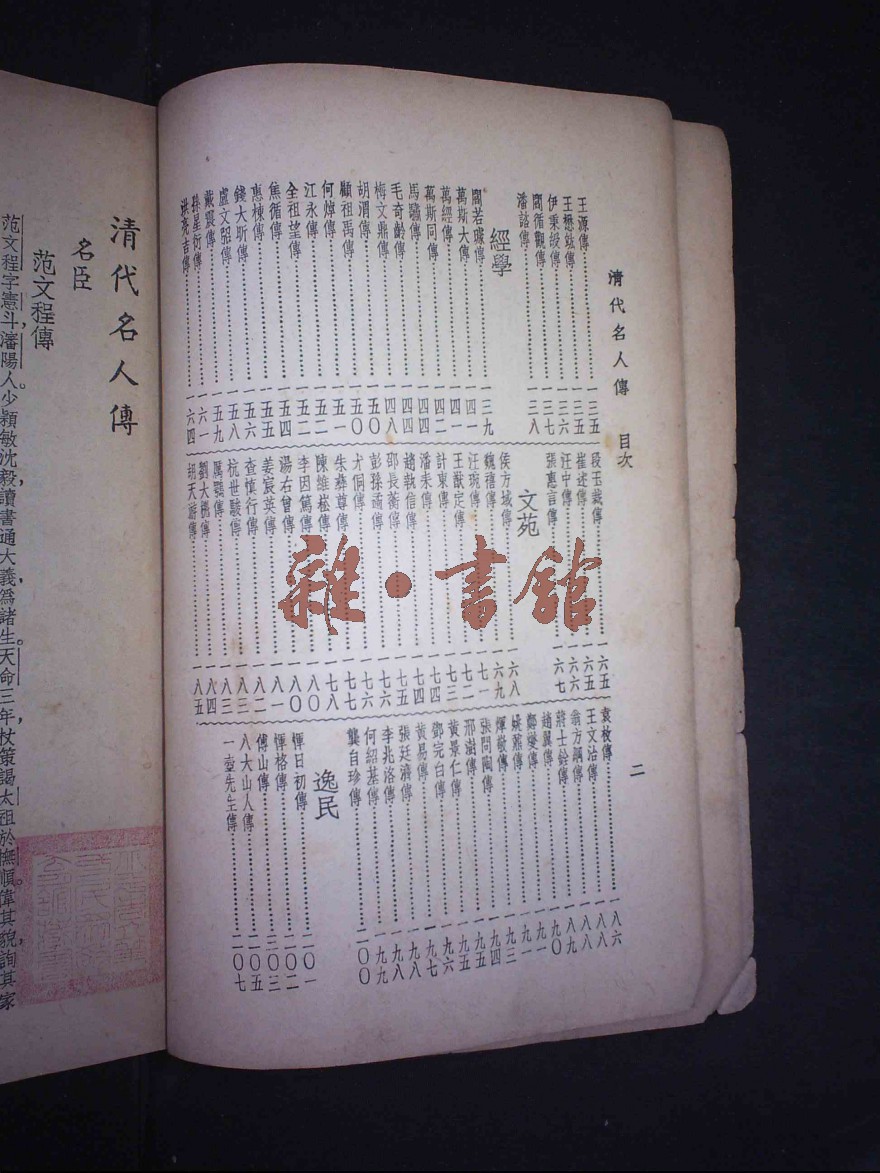 清代名人傳 目次 二
王源傳……一三五
王懋竑傳……一三五
伊秉綬傳……一三六
閻循觀傳……一三七
潘諮傳……一三八
經學
閻若璩傳……一三九
萬斯大傳……一四一
萬經傳……一四一
萬斯同傳……一四二
馬驌傳……一四四
毛奇齡傳……一四四
梅文鼎傳……一四八
胡渭傳……一五〇
顧祖禹傳……一五〇
何焯傳……一五一
江永傳……一五二
全祖望傳……一五二
焦循傳……一五四
惠棟傳……一五五
錢大昕傳……一五六
盧文弨傳……一五八
戴震傳……一五九
孫星衍傳……一六一
洪亮吉傳……一六四
段玉裁傳……一六五
崔述傳……一六五
汪中傳……一六六
張惠言傳……一六七
文苑
侯方域傳……一六八
魏禧傳……一六九
汪琬傳……一七一
王猷定傳……一七二
計東傳……一七三
潘耒傳……一七四
趙執信傳……一七四
邵長蘅傳……一七五
彭孫遹傳……一七六
尤侗傳……一七六
朱彝尊傳……一七七
陳維崧傳……一七八
李因篤傳……一八〇
湯右曾傳……一八〇
姜宸英傳……一八一
查慎行傳……一八二
杭世駿傳……一八三
厲鶚傳……一八三
劉大櫆傳……一八四
胡天游傳……一八五
袁枚傳……一八六
王文治傳……一八八
翁方綱傳……一八九
蔣士銓傳……一九〇
趙翼傳……一九一
鄭燮傳……一九一
姚鼐傳……一九三
惲敬傳……一九四
張問陶傳……一九五
邢澍傳……一九五
黃景仁傳……一九六
鄧完白傳……一九七
黃易傳……一九八
張廷濟傳……一九八
李兆洛傳……一九九
何紹基傳……一九九
龔自珍傳……二〇〇
逸民
惲日初傳……二〇一
惲格傳……二〇二
傅山傳……二〇三
八大山人傳……二〇五
一壺先生傳……二〇七
清代名人傳
名臣
范文程傳
范文程字憲斗，瀋陽人。少穎敏沈毅，讀書通大義，爲諸生。天命三年，杖策謁太祖於撫順，偉其貌，詢其家
雜·書館